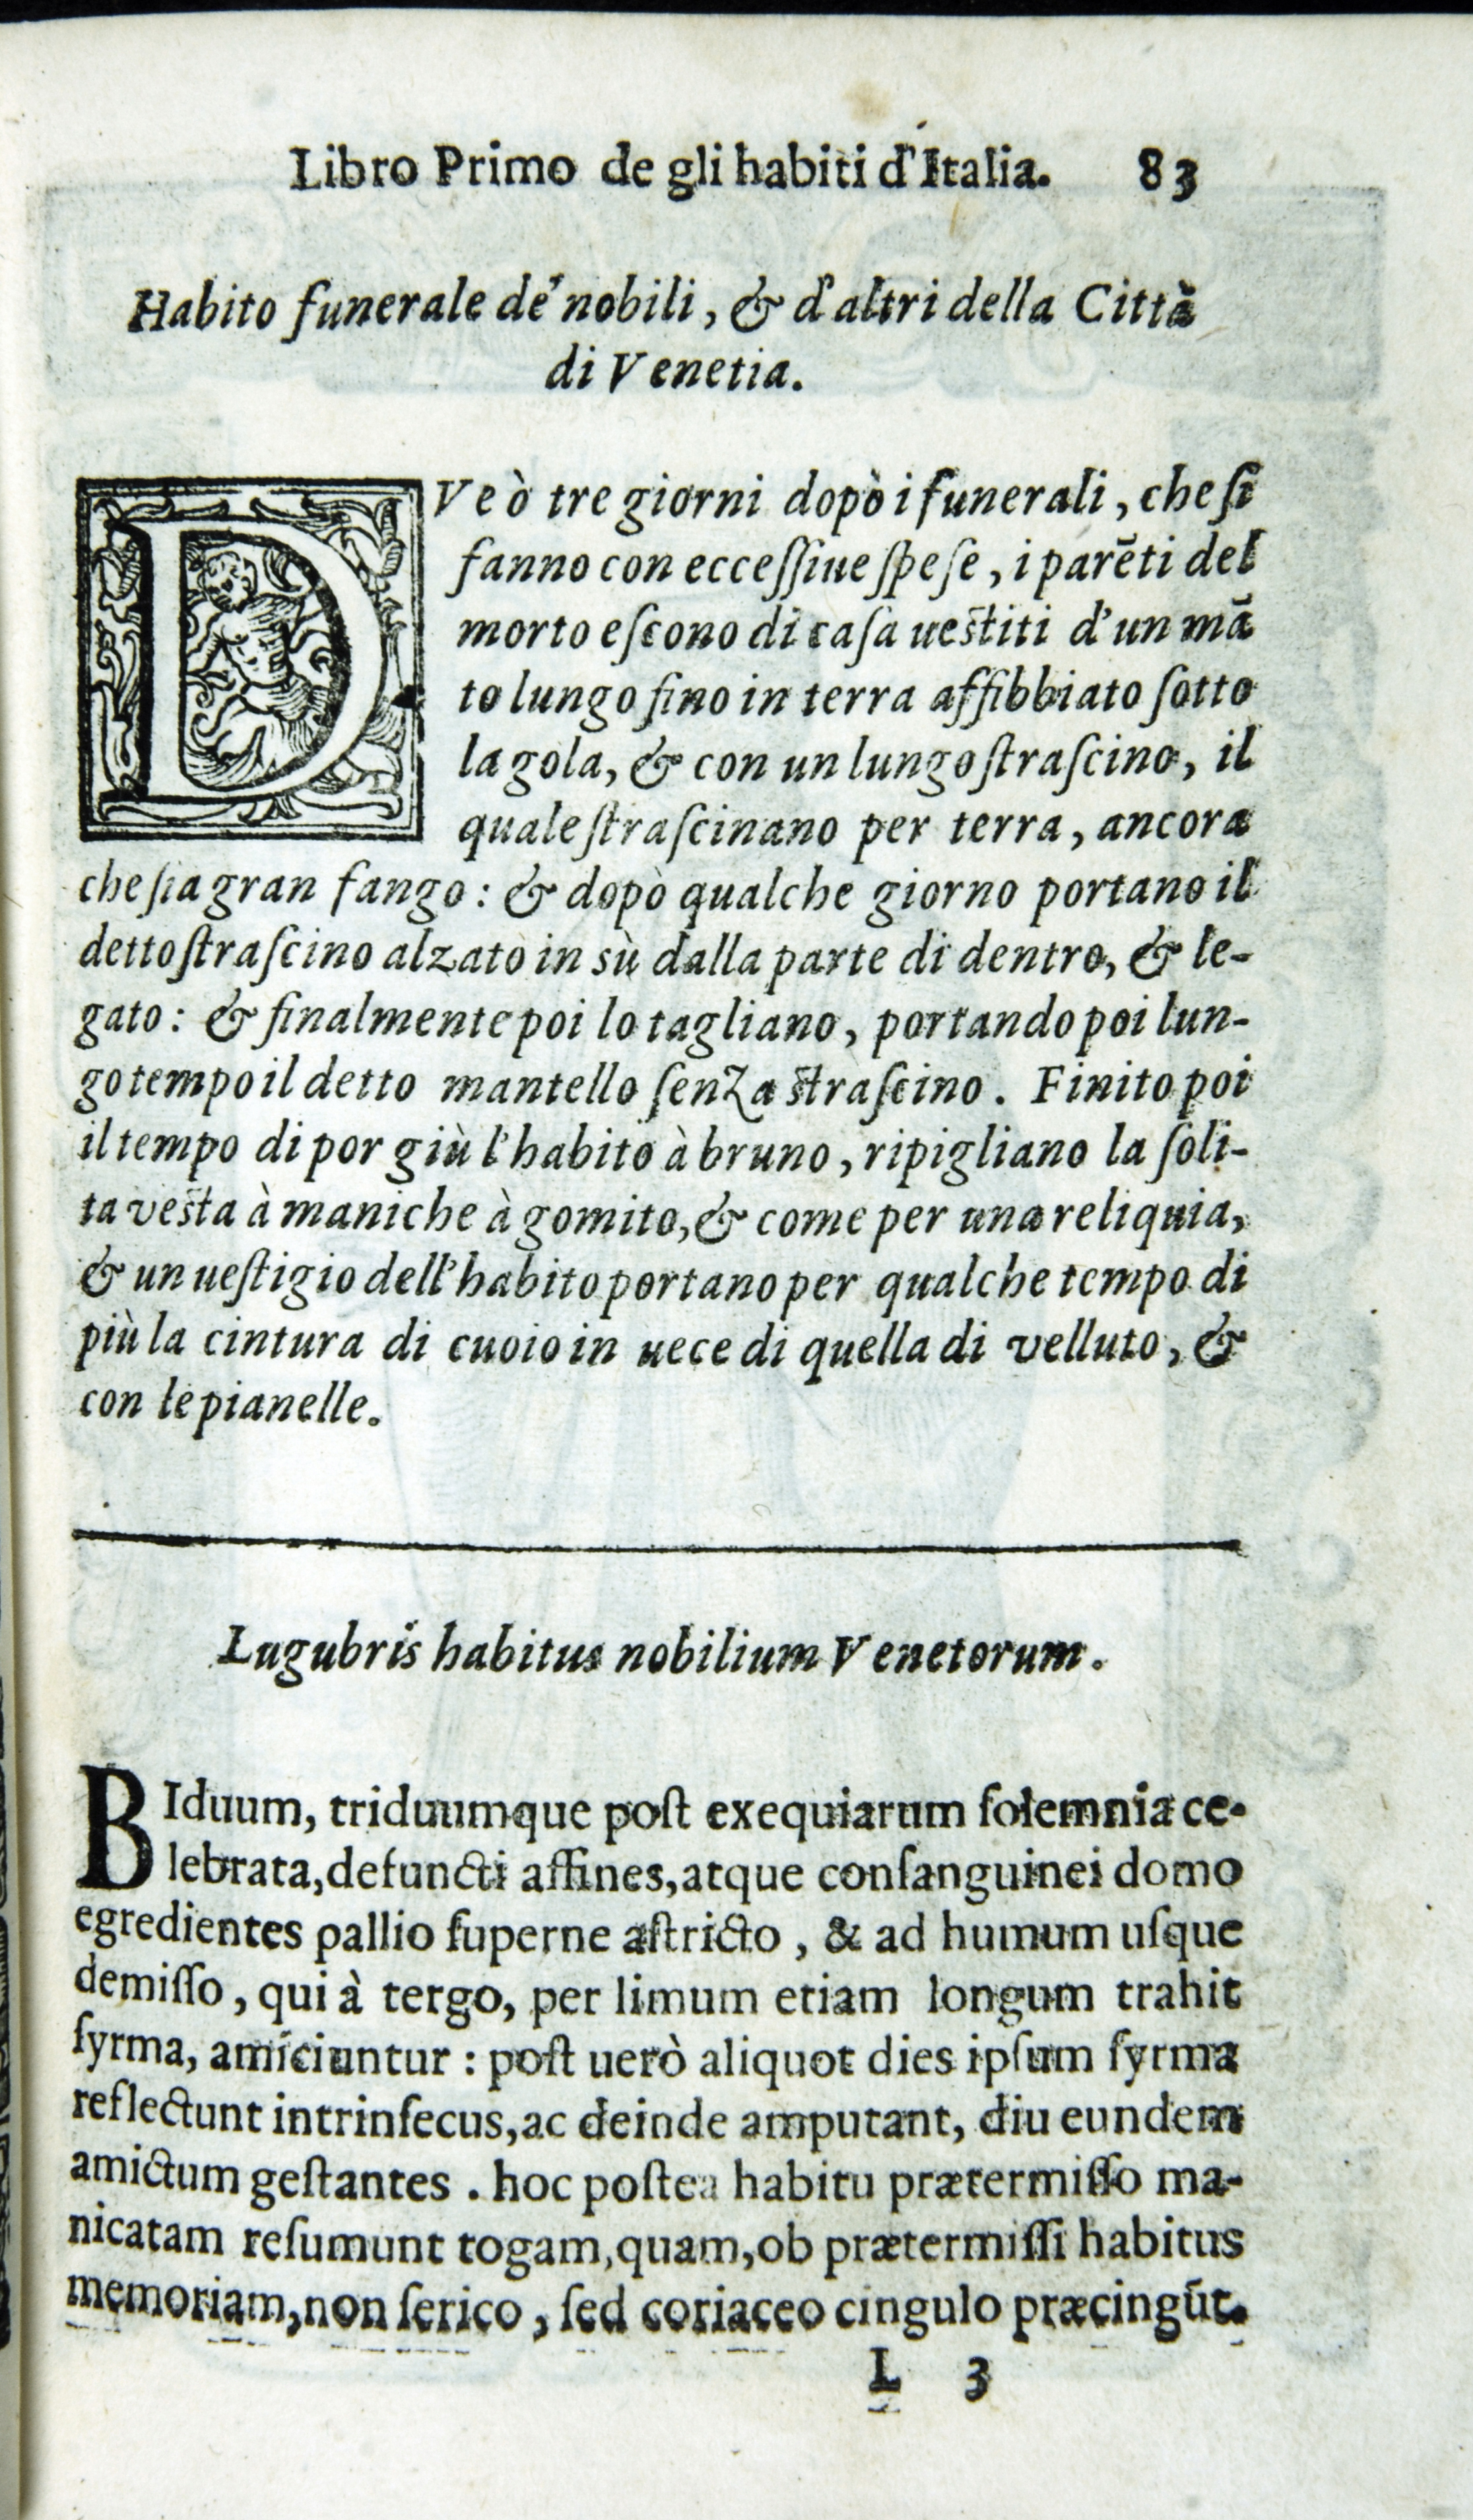 Libro Primo de gli habiti d'Italia. 83
Habito funerale de' nobili, & d'altri della Città
di Venetia.
DVe ò tre giorni dopò i funerali, che ſi
fanno con ecceſſiue ſpeſe, i parẽti del
morto eſcono di caſa ueſtiti d'un mã
to lungo fino in terra affibbiato ſotto
la gola, & con un lungo ſtraſcino, il
quale ſtraſcinano per terra, ancora
che ſia gran fango: & dopò qualche giorno portano il
detto ſtraſcino alzato in sù dalla parte di dentro, & le-
gato: & finalmente poi lo tagliano, portando poi lun-
go tempo il detto mantello ſenza ſtraſcino. Finito poi
il tempo di por giù l'habito à bruno, ripigliano la ſoli-
ta veſta à maniche à gomito, & come per una reliquia,
& un ueſtigio dell'habito portano per qualche tempo di
più la cintura di cuoio in uece di quella di velluto, &
con le pianelle.
Lugubris habitus nobilium Venetorum.
BIduum, triduumque poſt exequiarum ſolemnia ce-
lebrata, defuncti affines, atque conſanguinei domo
egredientes pallio ſuperne aſtricto, & ad humum uſque
demiſſo, qui à tergo, per limum etiam longum trahit
ſyrma, amiciuntur: poſt uerò aliquot dies ipſum ſyrma
reflectunt intrinſecus, ac deinde amputant, diu eundem
amictum geſtantes. hoc poſtea habitu prætermiſſo ma-
nicatam reſumunt togam, quam, ob prætermiſſi habitus
memoriam, non ſerico, ſed coriaceo cingulo præcingũt.
L 3